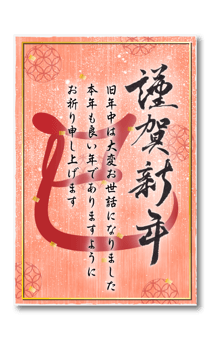 謹賀新年
旧年中は大変お世話になりました
本年も良い年でありますように
お祈り申し上げます